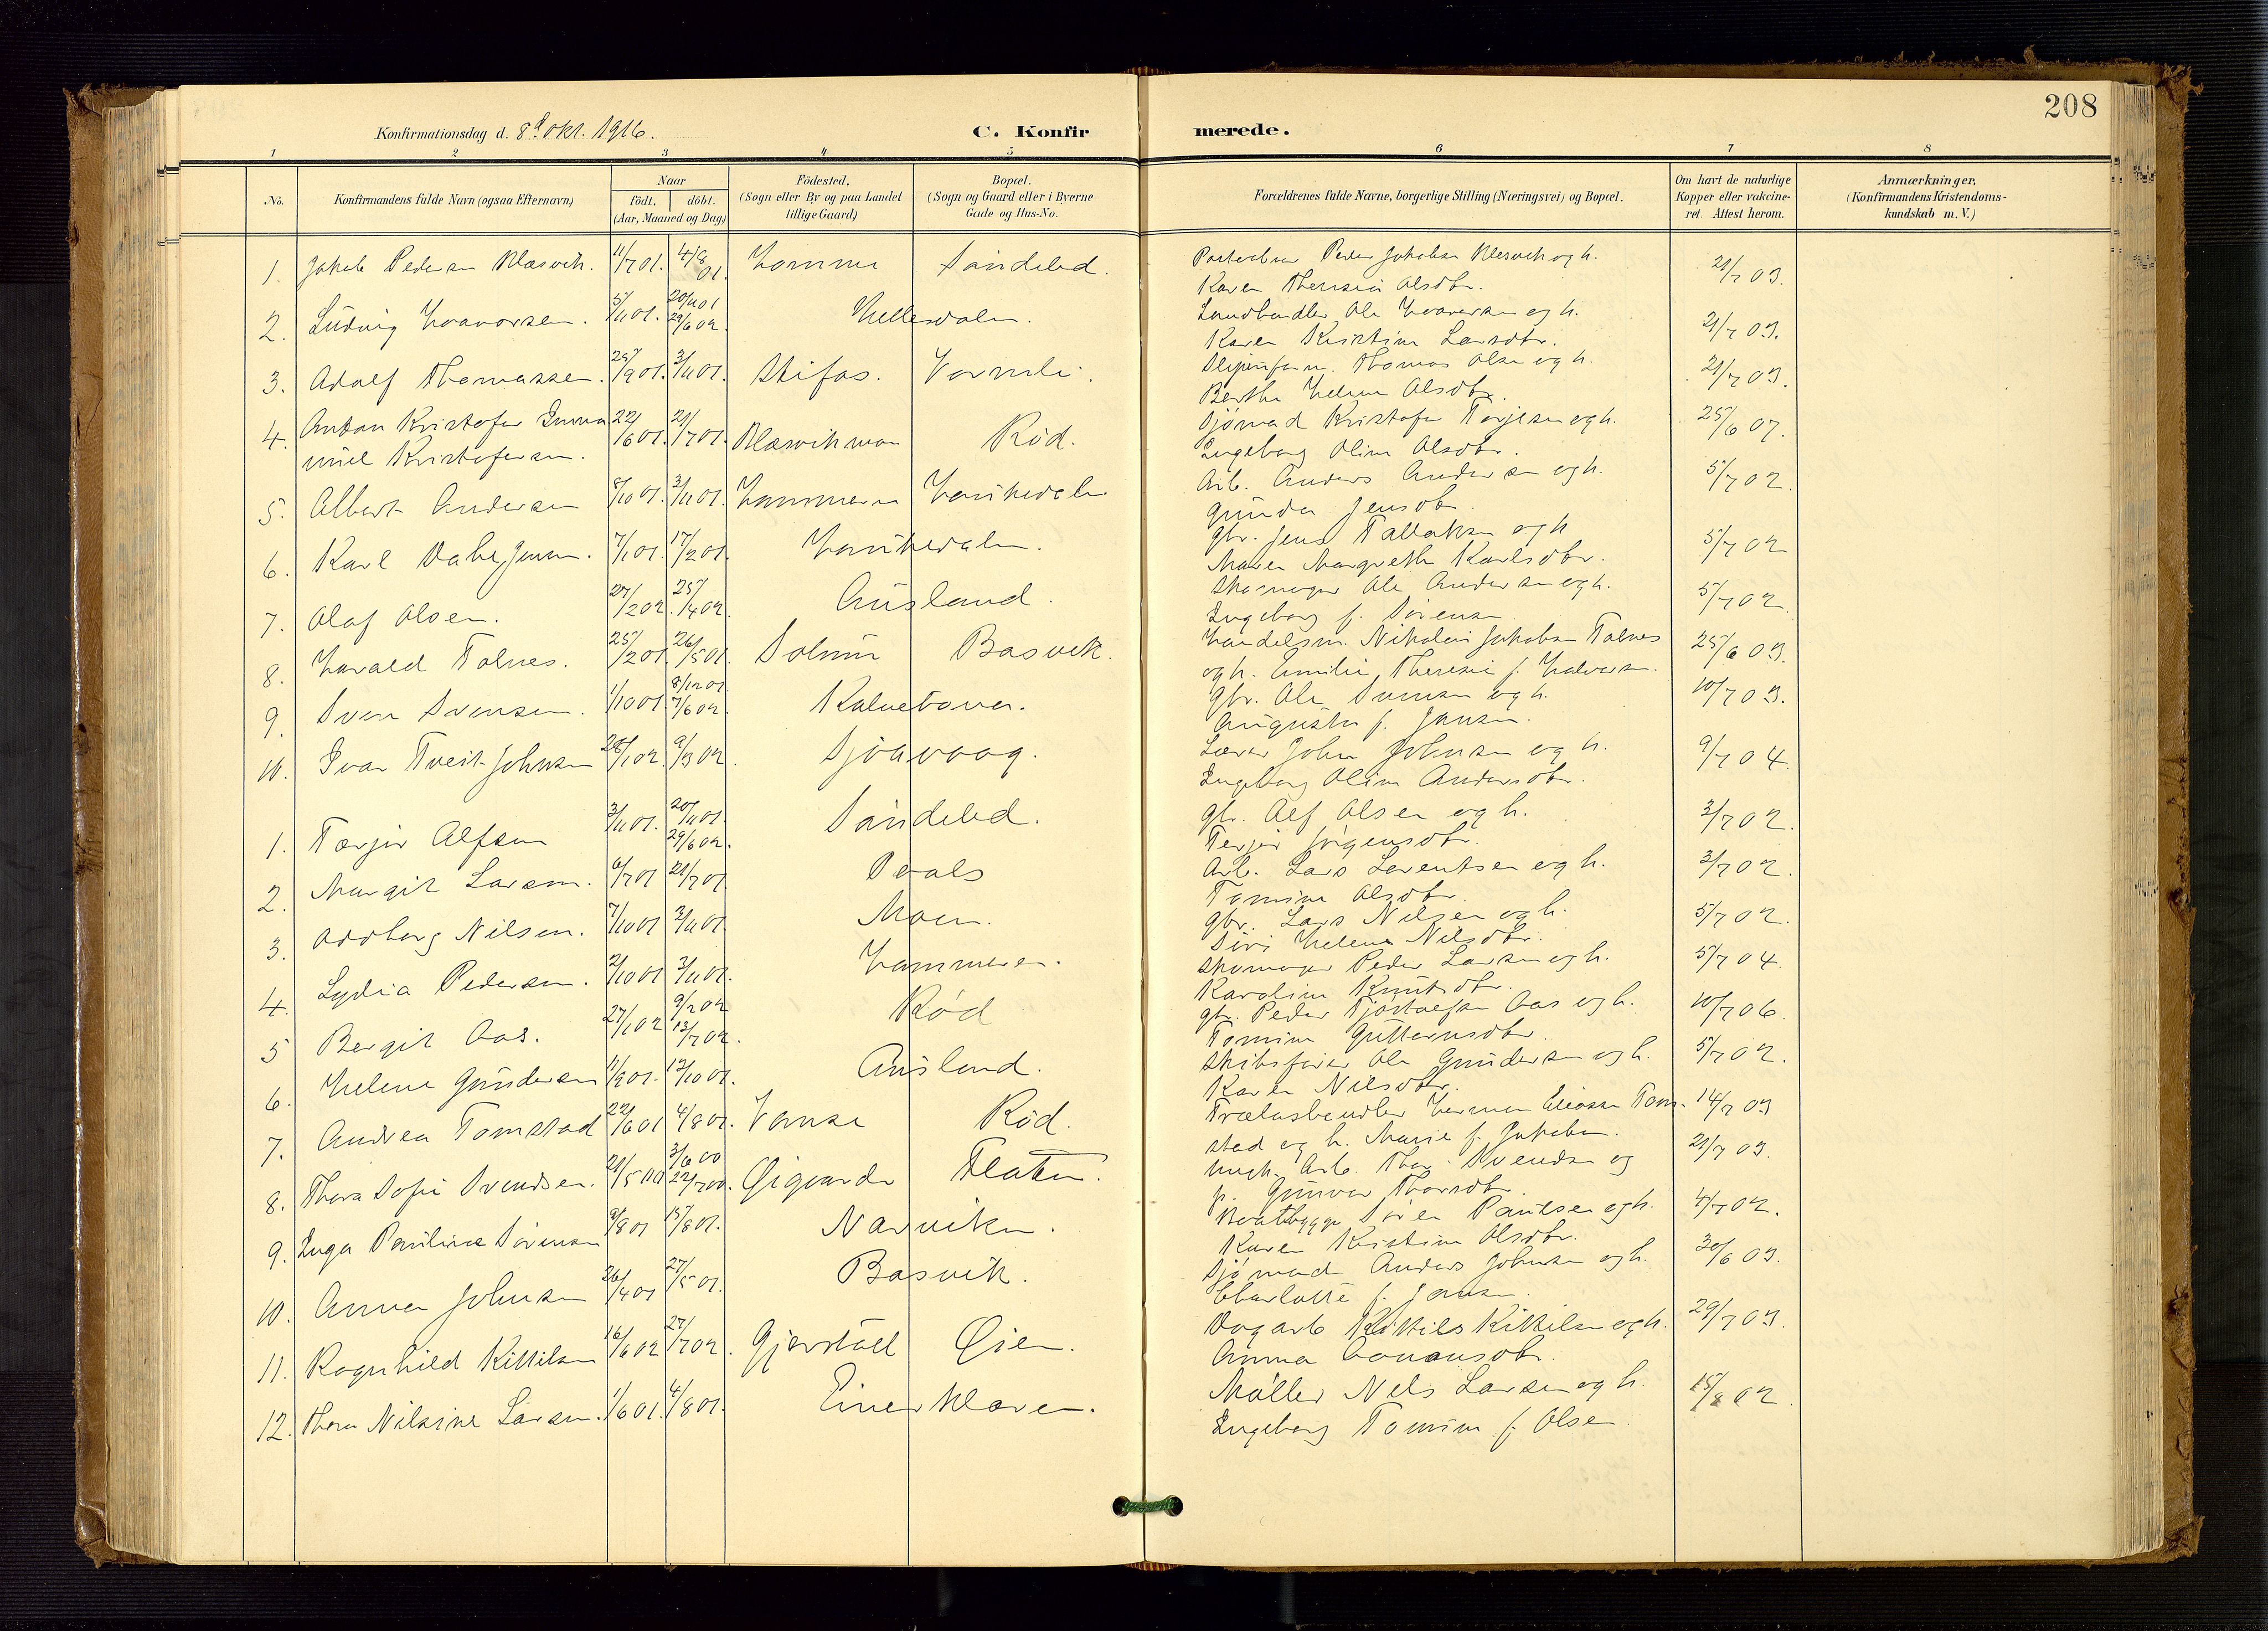 208
Konfirmationsdag d. 8de Okt. 1916.
C. Konfirmerede.
1 2 3 4 5 6 7 8
No.
Konfirmandens fulde Navn (ogsaa Efternavn)
Naar
födt. döbt.
(Aar, Maaned og Dag)
Födested.
(Sogn eller By og paa Landet
tillige Gaard)
Bopæl.
(Sogn og Gaard eller i Byerne
Gade og Hus-No.
Forældrenes fulde Navne, borgerlige Stilling (Næringsvei) og Bopæl.
Om havt de naturlige
Kopper eller vakcine-
ret. Attest herom.
Anmærkninger.
(Konfirmandens Kristendoms-
kundskab m. V.)
1. Jakob Pedersen 11/7 01. 4/8 01. Söndeled. Peder Jakobsen og h. 21/7 03.
Karen Theresia Olsdtr.
2. Ludvig 5/11 01. 20/11 01 29/6 02. Ole og h. 21/7 03.
Karen Kristine Larsdtr.
3. Adolf Thomassen. 25/9 01. 3/11 01. Stifos. Vormli. Thomas Olsen og h. 21/7 03.
Berthe Helene Olsdtr.
4. Anton Kristofer Imma 22/6 01. 21/7 01. Röd. Sjömand Kristofer Terjesen og h. 25/6 07.
nuel Kristofersen. Ingeborg Oline Olsdtr.
5. Albert Andersen 8/10 01. 3/11 01. Hammeren Haukedalen Arb. Anders Andersen og h. 5/7 02.
Gunda Jensdtr.
6. Karl Dahl Jensen. 7/1 01. 17/2 01. Haukedalen. gbr. Jens Tallaksen og h 5/7 02
Maren Margrethe Karlsdtr.
7. Olaf Olsen. 27/2 02. 25/4 02. Ausland. Skomager Ole Andersen og h. 5/7 02.
Ingeborg f. Sörensen
8. Harald Tolnes. 25/2 01. 26/5 01. Solum Basvik. Handelsm. Nikolai Jakobsen Tolnes 25/6 03.
og h. Emilie Theresie f. Halvorsen.
9. Sven Svensen. 1/10 01 8/12 01 7/6 02. gbr. Ole og h. 10/7 03.
Augusta f. Jansen.
10. Ivar Tveit Johnsen 28/1 02. 9/3 02. Sjöavaag. Lærer John Johnsen og h. 9/7 04.
Ingeborg Oline Andersdtr.
1. Alfsen 3/11 01. 20/11 01. 29/6 02. Söndeled. gbr. Alf Olsen og h. 3/7 02.
Jörgensdtr.
2. Margit Larsen. 6/7 01 21/7 01. Arb. Lars Lorentsen og h. 3/7 02.
Tomine Olsdtr.
3. Oddborg Nilsen. 7/10 01 3/11 01. Moen. gbr. Lars Nilsen og h. 5/7 02.
Siri Helene Nilsdtr.
4. Lydia Pedersen. 2/10 01 3/11 01. Hammeren. Skomager Peder Larsen og h. 5/7 04.
Karoline Knutsdtr.
5 Bergit Aas. 27/1 02 9/2 02 13/7 02. Röd gbr. Peder Aas og h. 10/7 06.
Tomine Guttormsdtr.
6. Helene Gundersen 11/9 01. 13/10 01. Ausland. Skibsförer Ole Gundersen og h. 5/7 02.
Karen Nilsdtr.
7. Andrea Tomstad 22/6 01 4/8 01. Vanse Röd. Trælasthandler Herman Tom- 14/7 03
stad og h. Marie f. Jakobsen.
8. Thora Sofie Svendsen. 21/5 00 3/6 00 22/7 00. Flaten. Arb. Thor Svendsen og 21/7 03.
Gunvor Thorsdtr.
9. Inga Pauline Sörensen 9/8 01 15/8 01. Narviken. Baatbygger Sören Paulsen og h. 4/7 02.
Karen Kristine Olsdtr.
10. Anna Johnsen 26/4 01 27/5 01. Basvik. Sjömand Anders Johnsen og h. 30/6 03.
Charlotte f. Jansen.
11. Ragnhild Kittilsen 16/6 02 27/7 02. Gjerstad Øien. Dagarb Kittil Kittilsen og h. 29/7 03.
Anna
12. Thora Nilsine Larsen. 1/6 01. 4/8 01. Møller Nils Larsen og h. 15/8 02
Ingeborg Tomine f. Olsen.